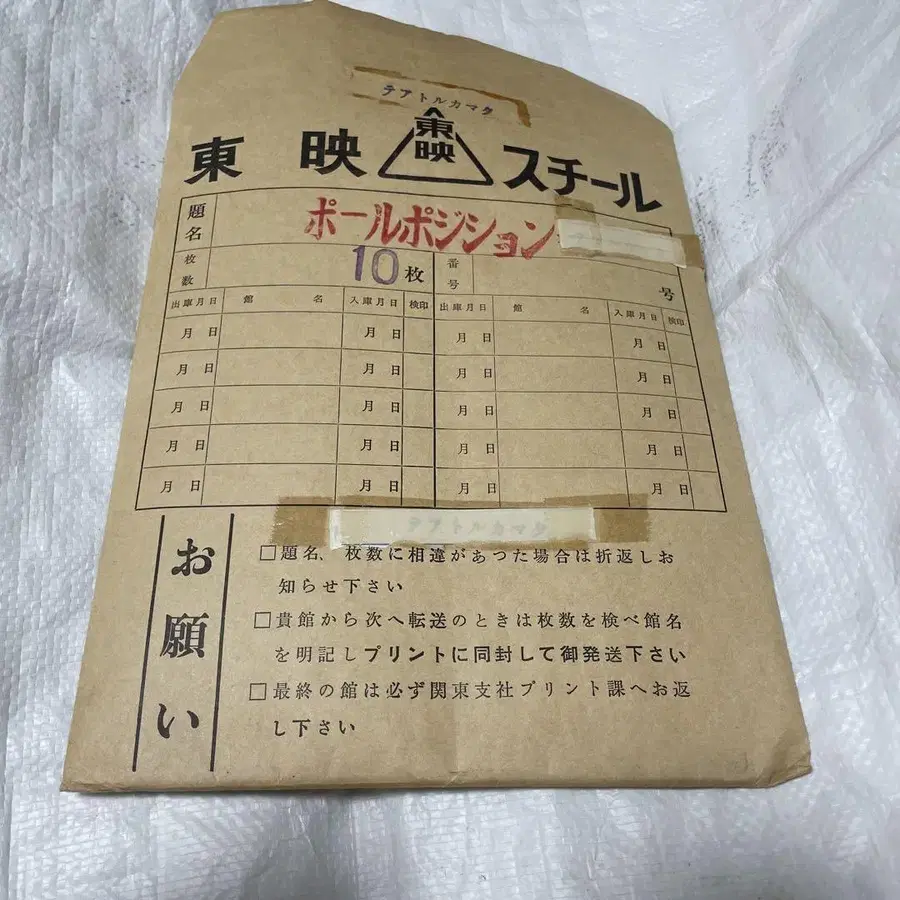 テアトルカマタ
東映 東映 スチール
題名 ポールポジション
枚数 10枚 番号 号
出庫月日 館名 入庫月日 検印 出庫月日 館名 入庫月日 検印
月日 月日 月日 月日
月日 月日 月日 月日
月日 月日 月日 月日
月日 月日 月日 月日
月日 月日 月日 月日
テアトルカマタ
お願い
□題名、枚数に相違があつた場合は折返しお
知らせ下さい
□貴館から次へ転送のときは枚数を検べ館名
を明記しプリントに同封して御発送下さい
□最終の館は必ず関東支社プリント課へお返
し下さい